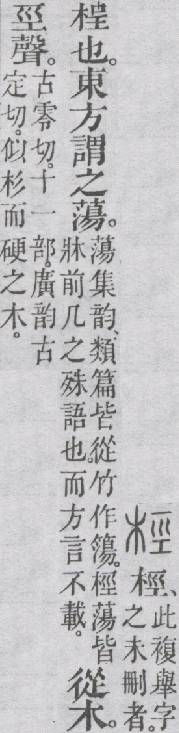 桱
桱、此複舉字
之未刪者。
桯也。東方謂之蕩。
蕩集韵、類篇皆從竹作簜。桱蕩皆
牀前几之殊語也。而方言不載。
從木。
巠聲。
古零切。十一部。廣韵古
定切。似杉而硬之木。